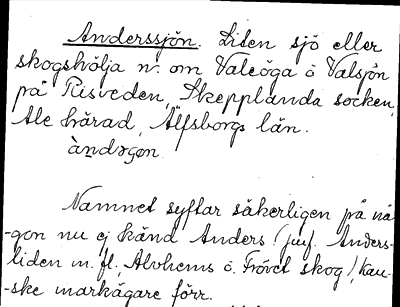 Anderssjön. Liten sjö eller
skogshölja n. om Valeöga o Valsjön
på Risveden, Skepplanda socken,
Ale härad, Älfsborgs län.
àndəṣon
Namnet syftar säkerligen på nå-
-gon nu ej känd Anders (jmf. Anders-
liden m. fl., Alvhems o. Frövet skog), kan-
ske markägare förr.